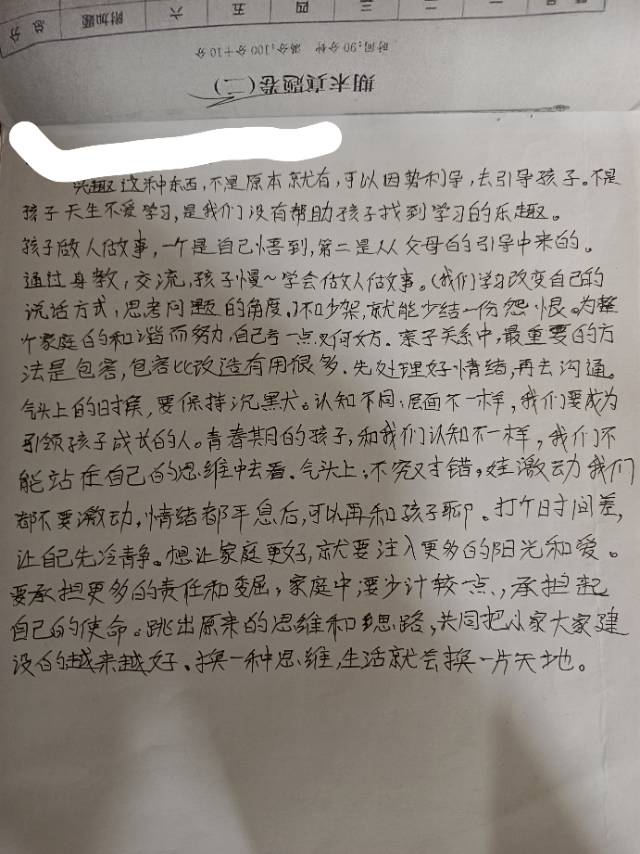 总分 附加题 六 五 四 三 二 一
时间:90分钟 满分:100分+10分
期末真题卷(二)
兴趣这种东西,不是原本就有,可以因势利导,去引导孩子。不是
孩子天生不爱学习,是我们没有帮助孩子找到学习的乐趣。
孩子做人做事,一个是自己悟到,第二是从父母的引导中来的。
通过身教,交流,孩子慢~学会做人做事。(我们学习改变自己的
说话方式,思考问题的角度,不吵架,就能少结一份怨恨。为整
个家庭的和谐而努力,自己亏一点又何妨。亲子关系中,最重要的方
法是包容,包容比改造有用很多.先处理好情绪,再去沟通。
气头上的时候,要保持沉默。认知不同,层面不一样,我们要成为
引领孩子成长的人。青春期的孩子,和我们认知不一样,我们不
能站在自己的思维中去看.气头上,不究对错,娃激动我们
都不要激动,情绪都平息后,可以再和孩子聊。打个时间差,
让自己先冷静。想让家庭更好,就要注入更多的阳光和爱。
要承担更多的责任和委屈,家庭中,要少计较一点,承担起
自己的使命。跳出原来的思维和思路,共同把小家大家建
设的越来越好.换一种思维,生活就会换一片天地。